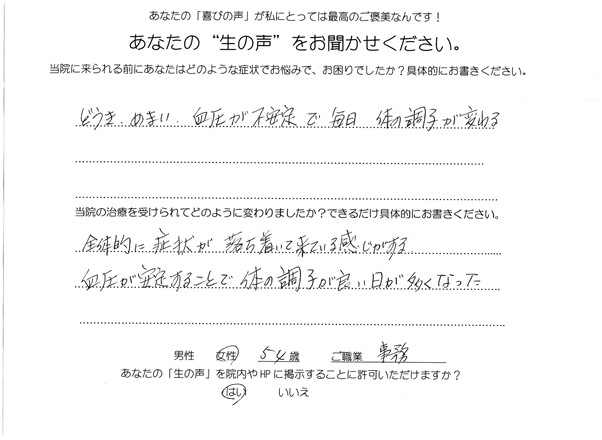 あなたの「喜びの声」が私にとっては最高のご褒美なんです！
あなたの“生の声”をお聞かせください。
当院に来られる前にあなたはどのような症状でお悩みで、お困りでしたか？具体的にお書きください。
どうき．めまい．血圧が不安定で毎日 体の調子が変わる
当院の治療を受けられてどのように変わりましたか？できるだけ具体的にお書きください。
全体的に症状が落ち着いて来ている感じがする
血圧が安定することで体の調子が良い日が多くなった
男性 女性 54歳 ご職業 事務
あなたの「生の声」を院内やHPに掲示することに許可いただけますか？
はい いいえ